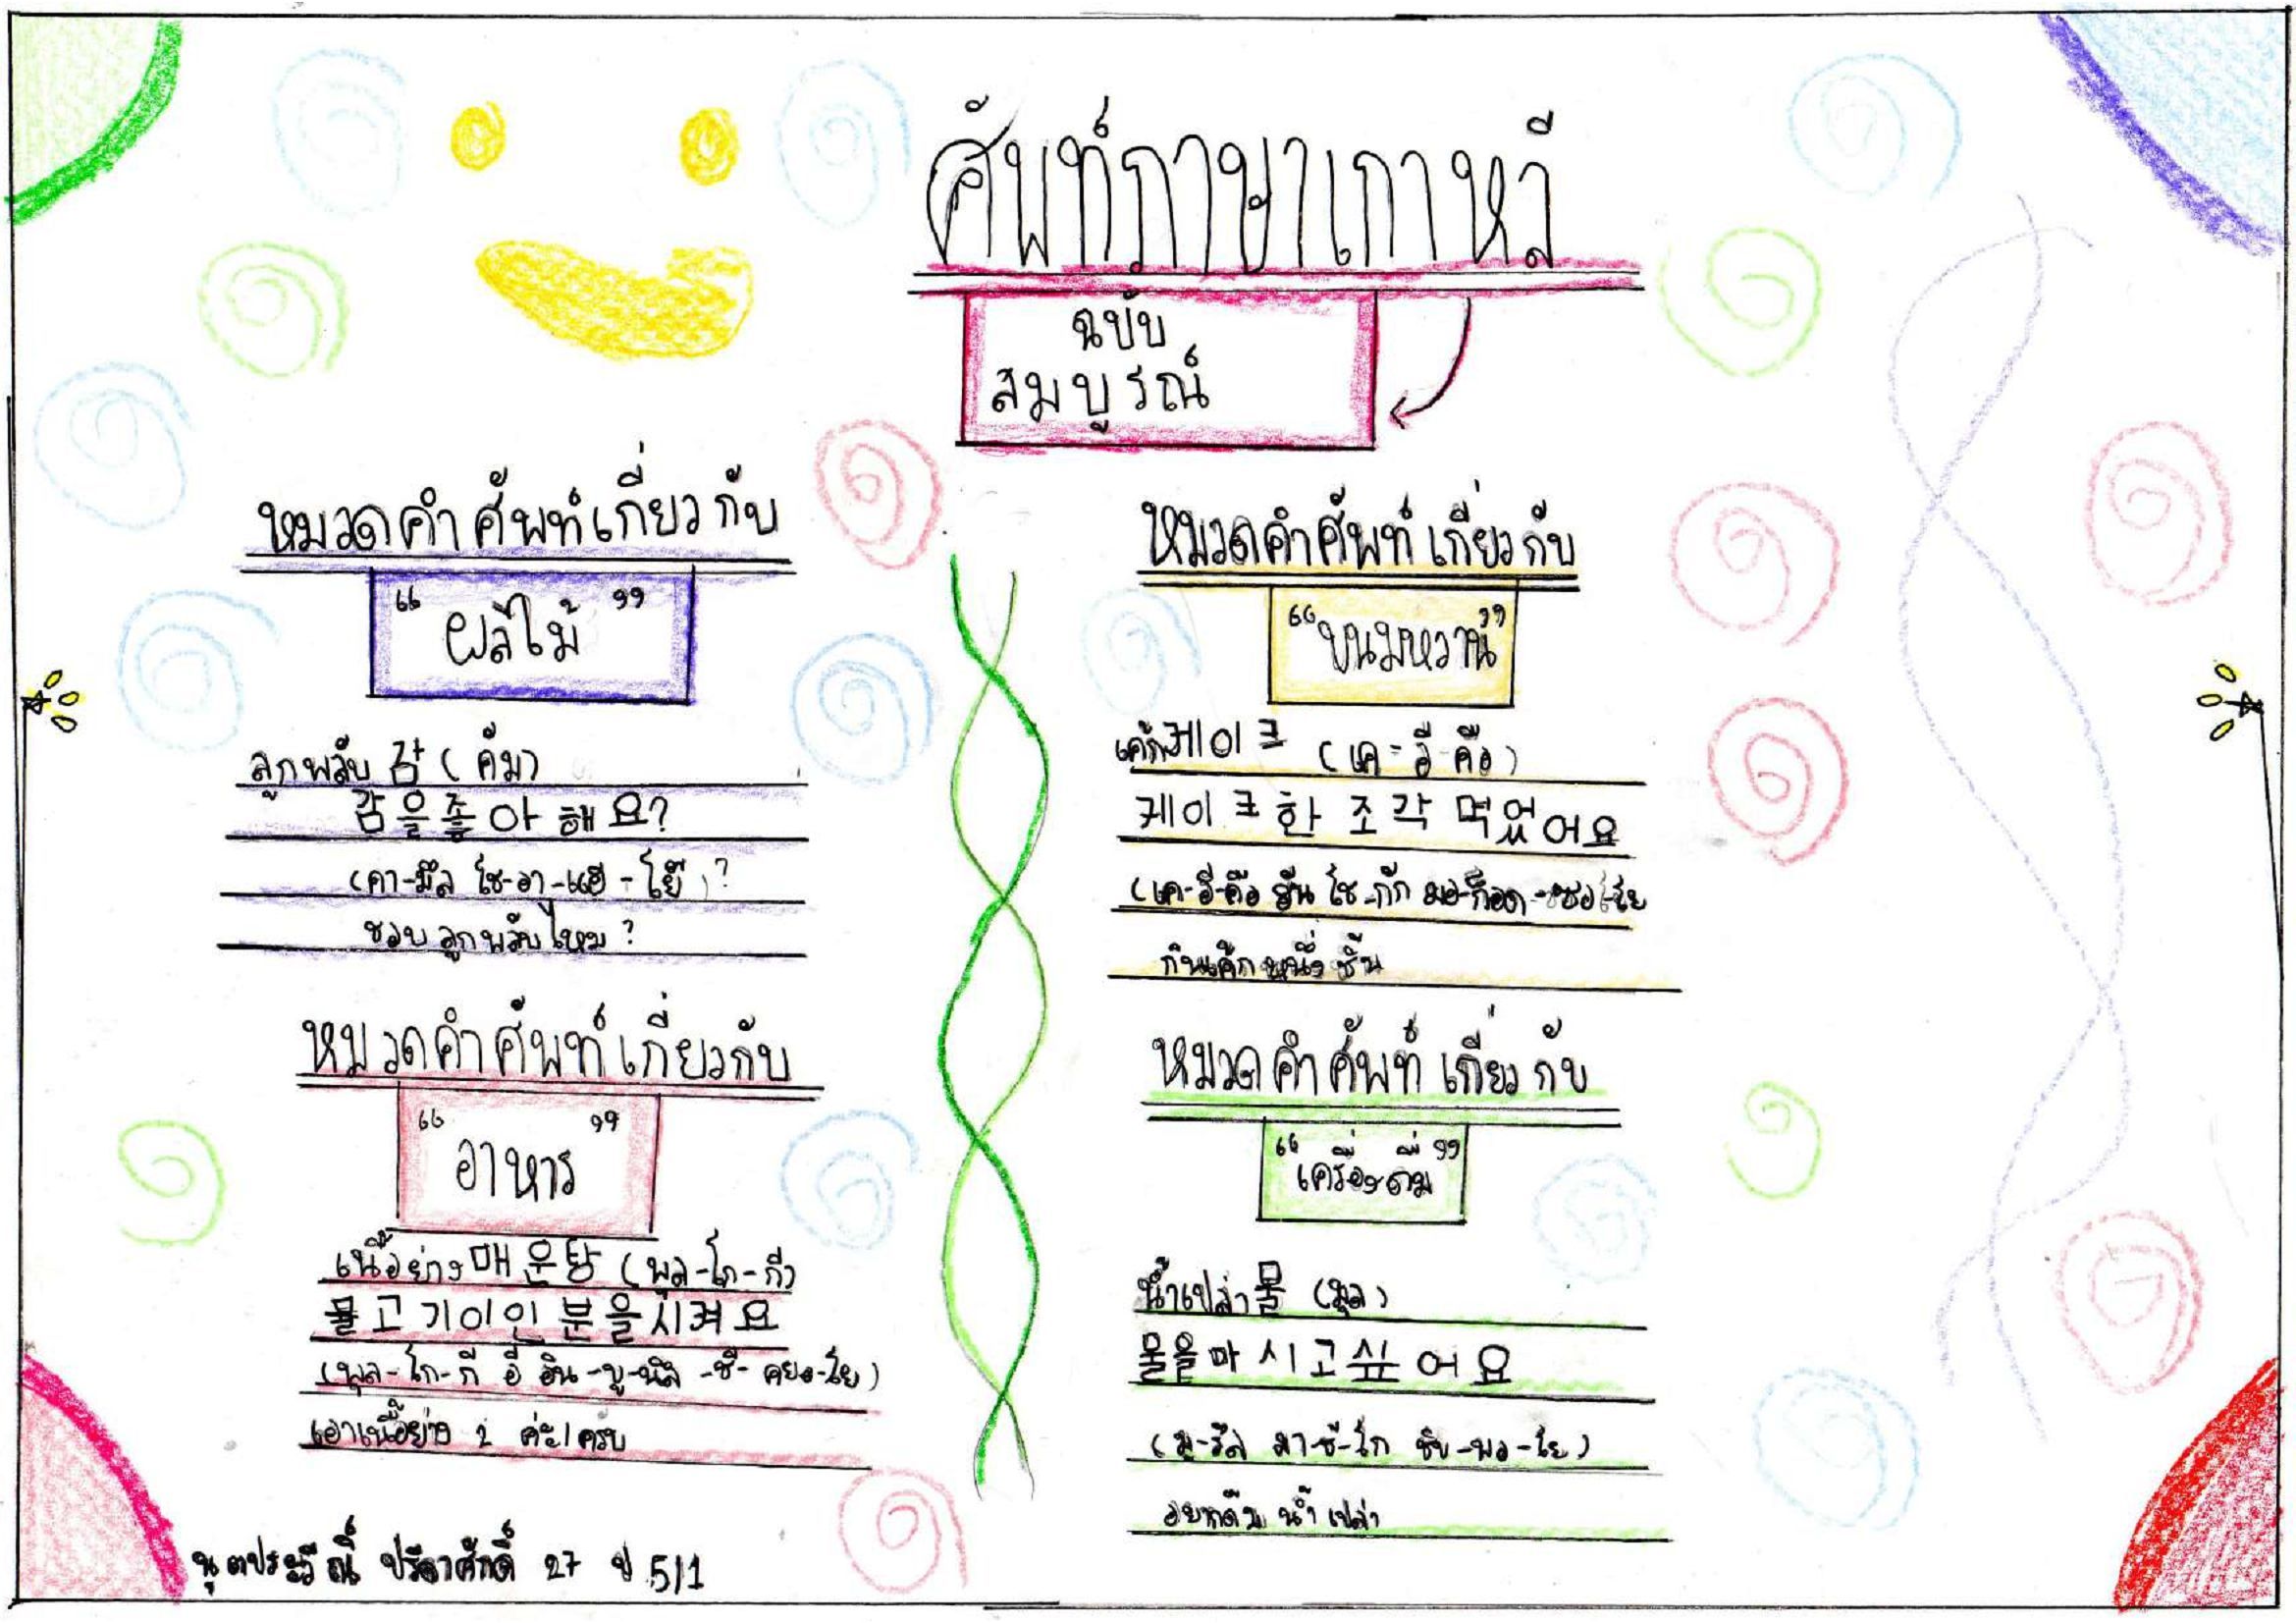 ศัพท์ภาษาเกาหลี
ฉบับ
สมบูรณ์
หมวดคำศัพท์เกี่ยวกับ
“ผลไม้”
ลูกพลับ 감 (คัม)
감을 좋아해요?
(คา-มึล โช-อา-แฮ-โย๊)?
ชอบลูกพลับไหม?
หมวดคำศัพท์เกี่ยวกับ
“อาหาร”
เนื้อย่าง 매운탕 (พุล-โก-กี)
불고기이인분을시켜요
(พุล-โก-กี อี อิน-บู-นึล-ชี-คยอ-โย)
เอาเนื้อย่าง 2 ค่ะ/ครับ
หมวดคำศัพท์เกี่ยวกับ
“ขนมหวาน”
เค้ก케이크 (เค-อี-คือ)
케이크 한 조각 먹었어요
(เค-อี-คือ ฮัน โช-กัก มอ-ก็อด-ซอ-โย
กินเค้กหนึ่งชิ้น
หมวดคำศัพท์เกี่ยวกับ
“เครื่องดื่ม”
น้ำเปล่า물 (มุล)
물을마시고싶어요
(มู-รึล มา-ชี-โก ชิบ-พอ-โย)
อยากดื่ม น้ำเปล่า
ปรีดาศักดิ์ 27 ป 5/1